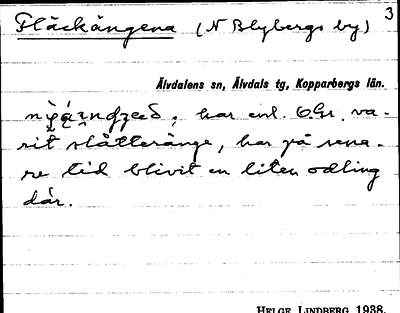 Fläckängena (N Blybergs by) 3
Älvdalens sn, Älvdals tg, Kopparbergs län.
har enl. OGr. va-
rit slåtteränge, har på sena-
re tid blivit en liten odling
där.
HELGE LINDBERG 1938.